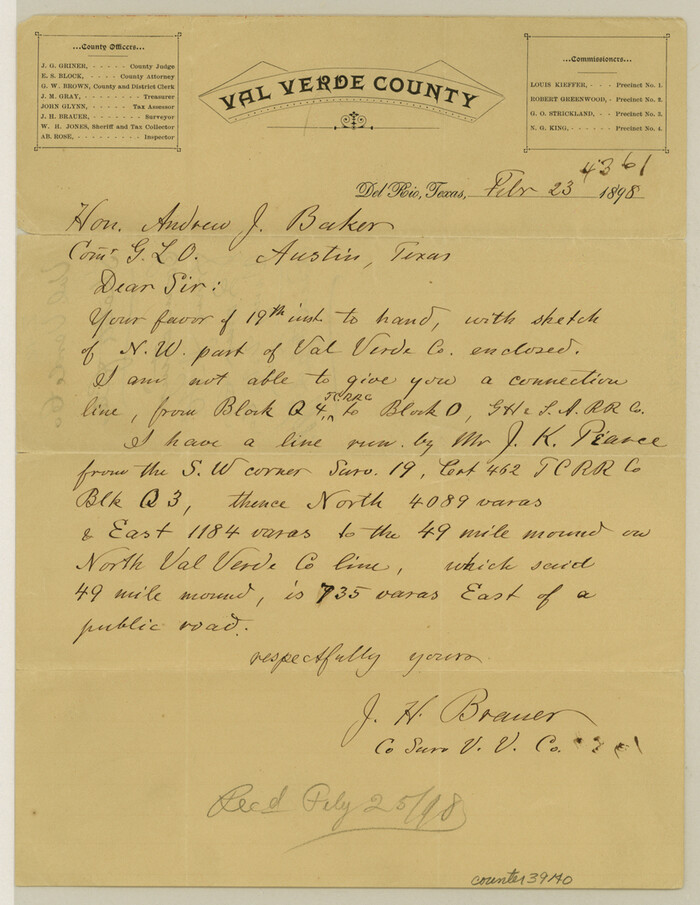 ...County Officers...
J. G. GRINER, - - - - - - County Judge
E. S. BLOCK, - - - - - County Attorney
G. W. BROWN, County and District Clerk
J. M. GRAY, - - - - - - - Treasurer
JOHN GLYNN, - - - - - Tax Assessor
J. H. BRAUER, - - - - - - Surveyor
W. H. JONES, Sheriff and Tax Collector
AB. ROSE, - - - - - - - - Inspector
VAL VERDE COUNTY
...Commissioners...
LOUIS KIEFFER, - - - Precinct No. 1.
ROBERT GREENWOOD, - Precinct No. 2.
G. O. STRICKLAND, - - Precinct No. 3.
N. G. KING, - - - - Precinct No. 4.
4361
Del Rio, Texas, Febr 23 1898
Hon. Andrew J. Baker
Com'r G. L. O. Austin, Texas
Dear Sir:
Your favor of 19th inst. to hand, with sketch
of N. W. part of Val Verde Co. enclosed.
I am not able to give you a connection
line, from Block Q 4, TCRRC to Block O, GH & S. A. RR Co.
I have a line run by Mr J. K. Pearce
from the S. W corner Surv. 19, Cert 462 T C RR Co
Blk Q 3, thence North 4089 varas
& East 1184 varas to the 49 mile mound on
North Val Verde Co line, which said
49 mile mound, is 735 varas East of a
public road.
respectfully yours
J. H. Brauer
Co Surv V. V. Co.
Rec'd Feby 25/98
counter 39140